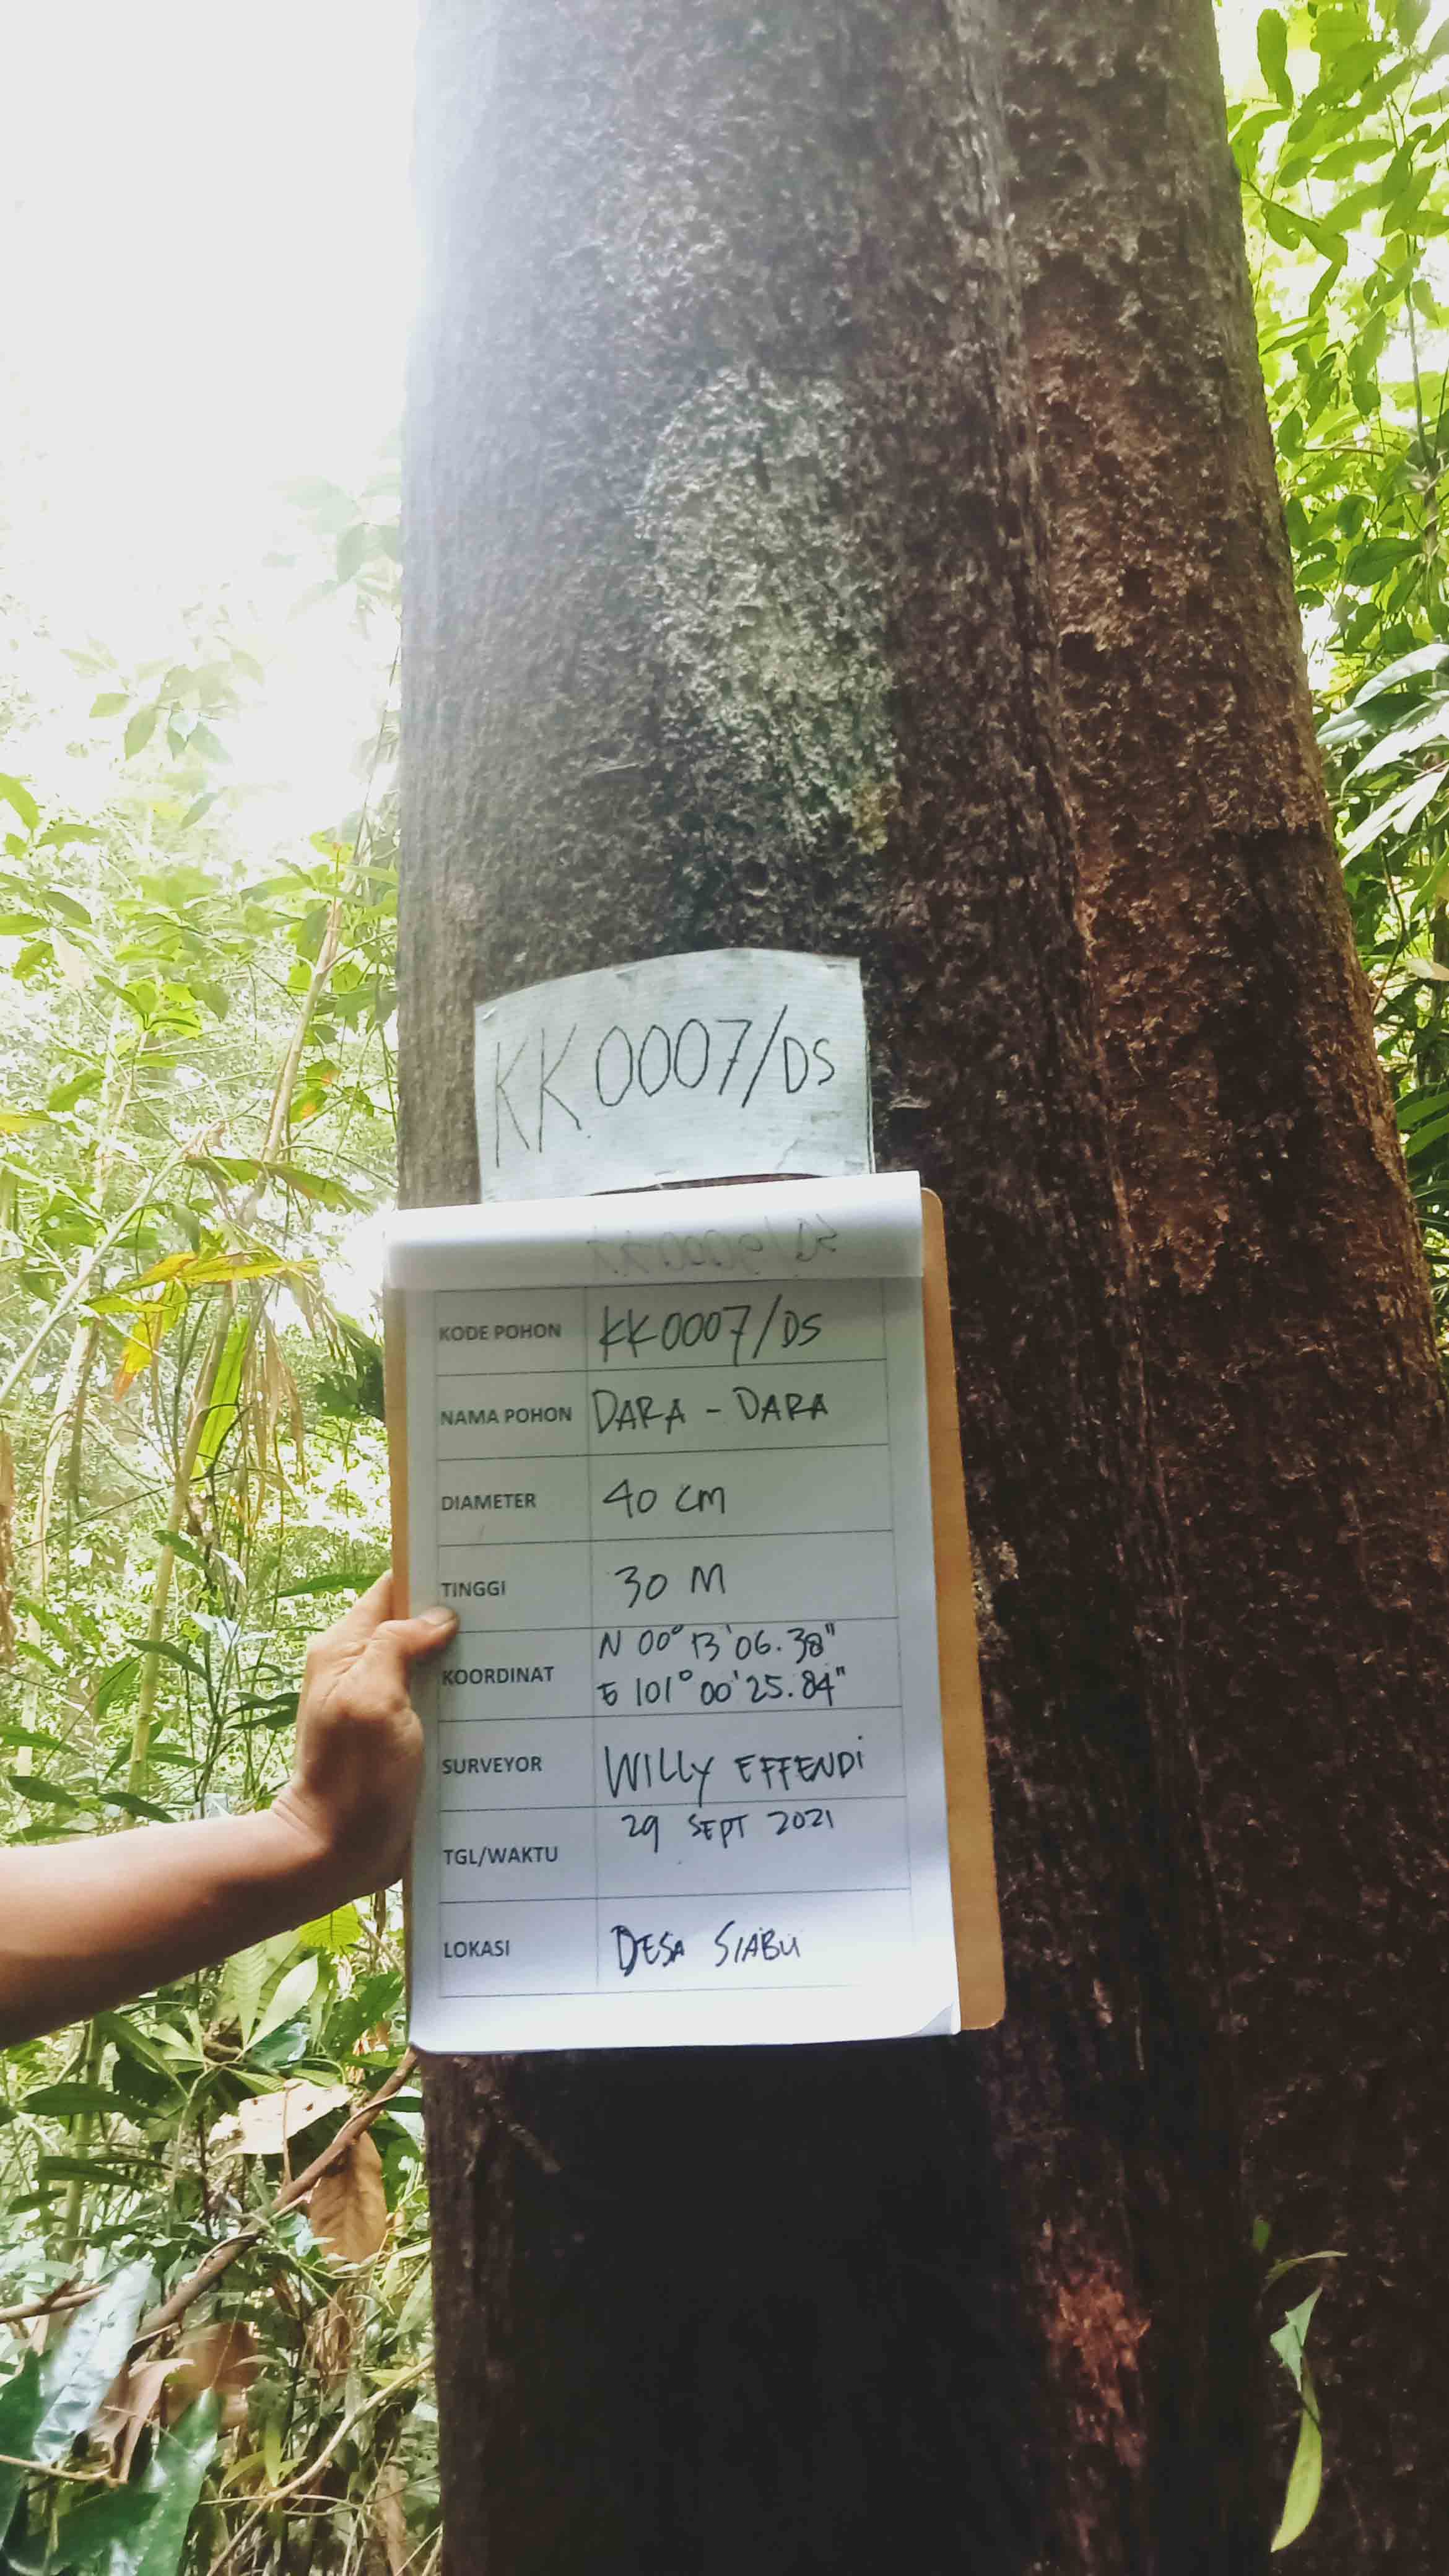 KK0007/DS
KODE POHON KK0007/DS
NAMA POHON DARA - DARA
DIAMETER 40 CM
TINGGI 30 M
KOORDINAT N 00° 13'06.38"
E 101° 00'25.84"
SURVEYOR WILLY EFFENDI
TGL/WAKTU 29 SEPT 2021
LOKASI DESA SIABU